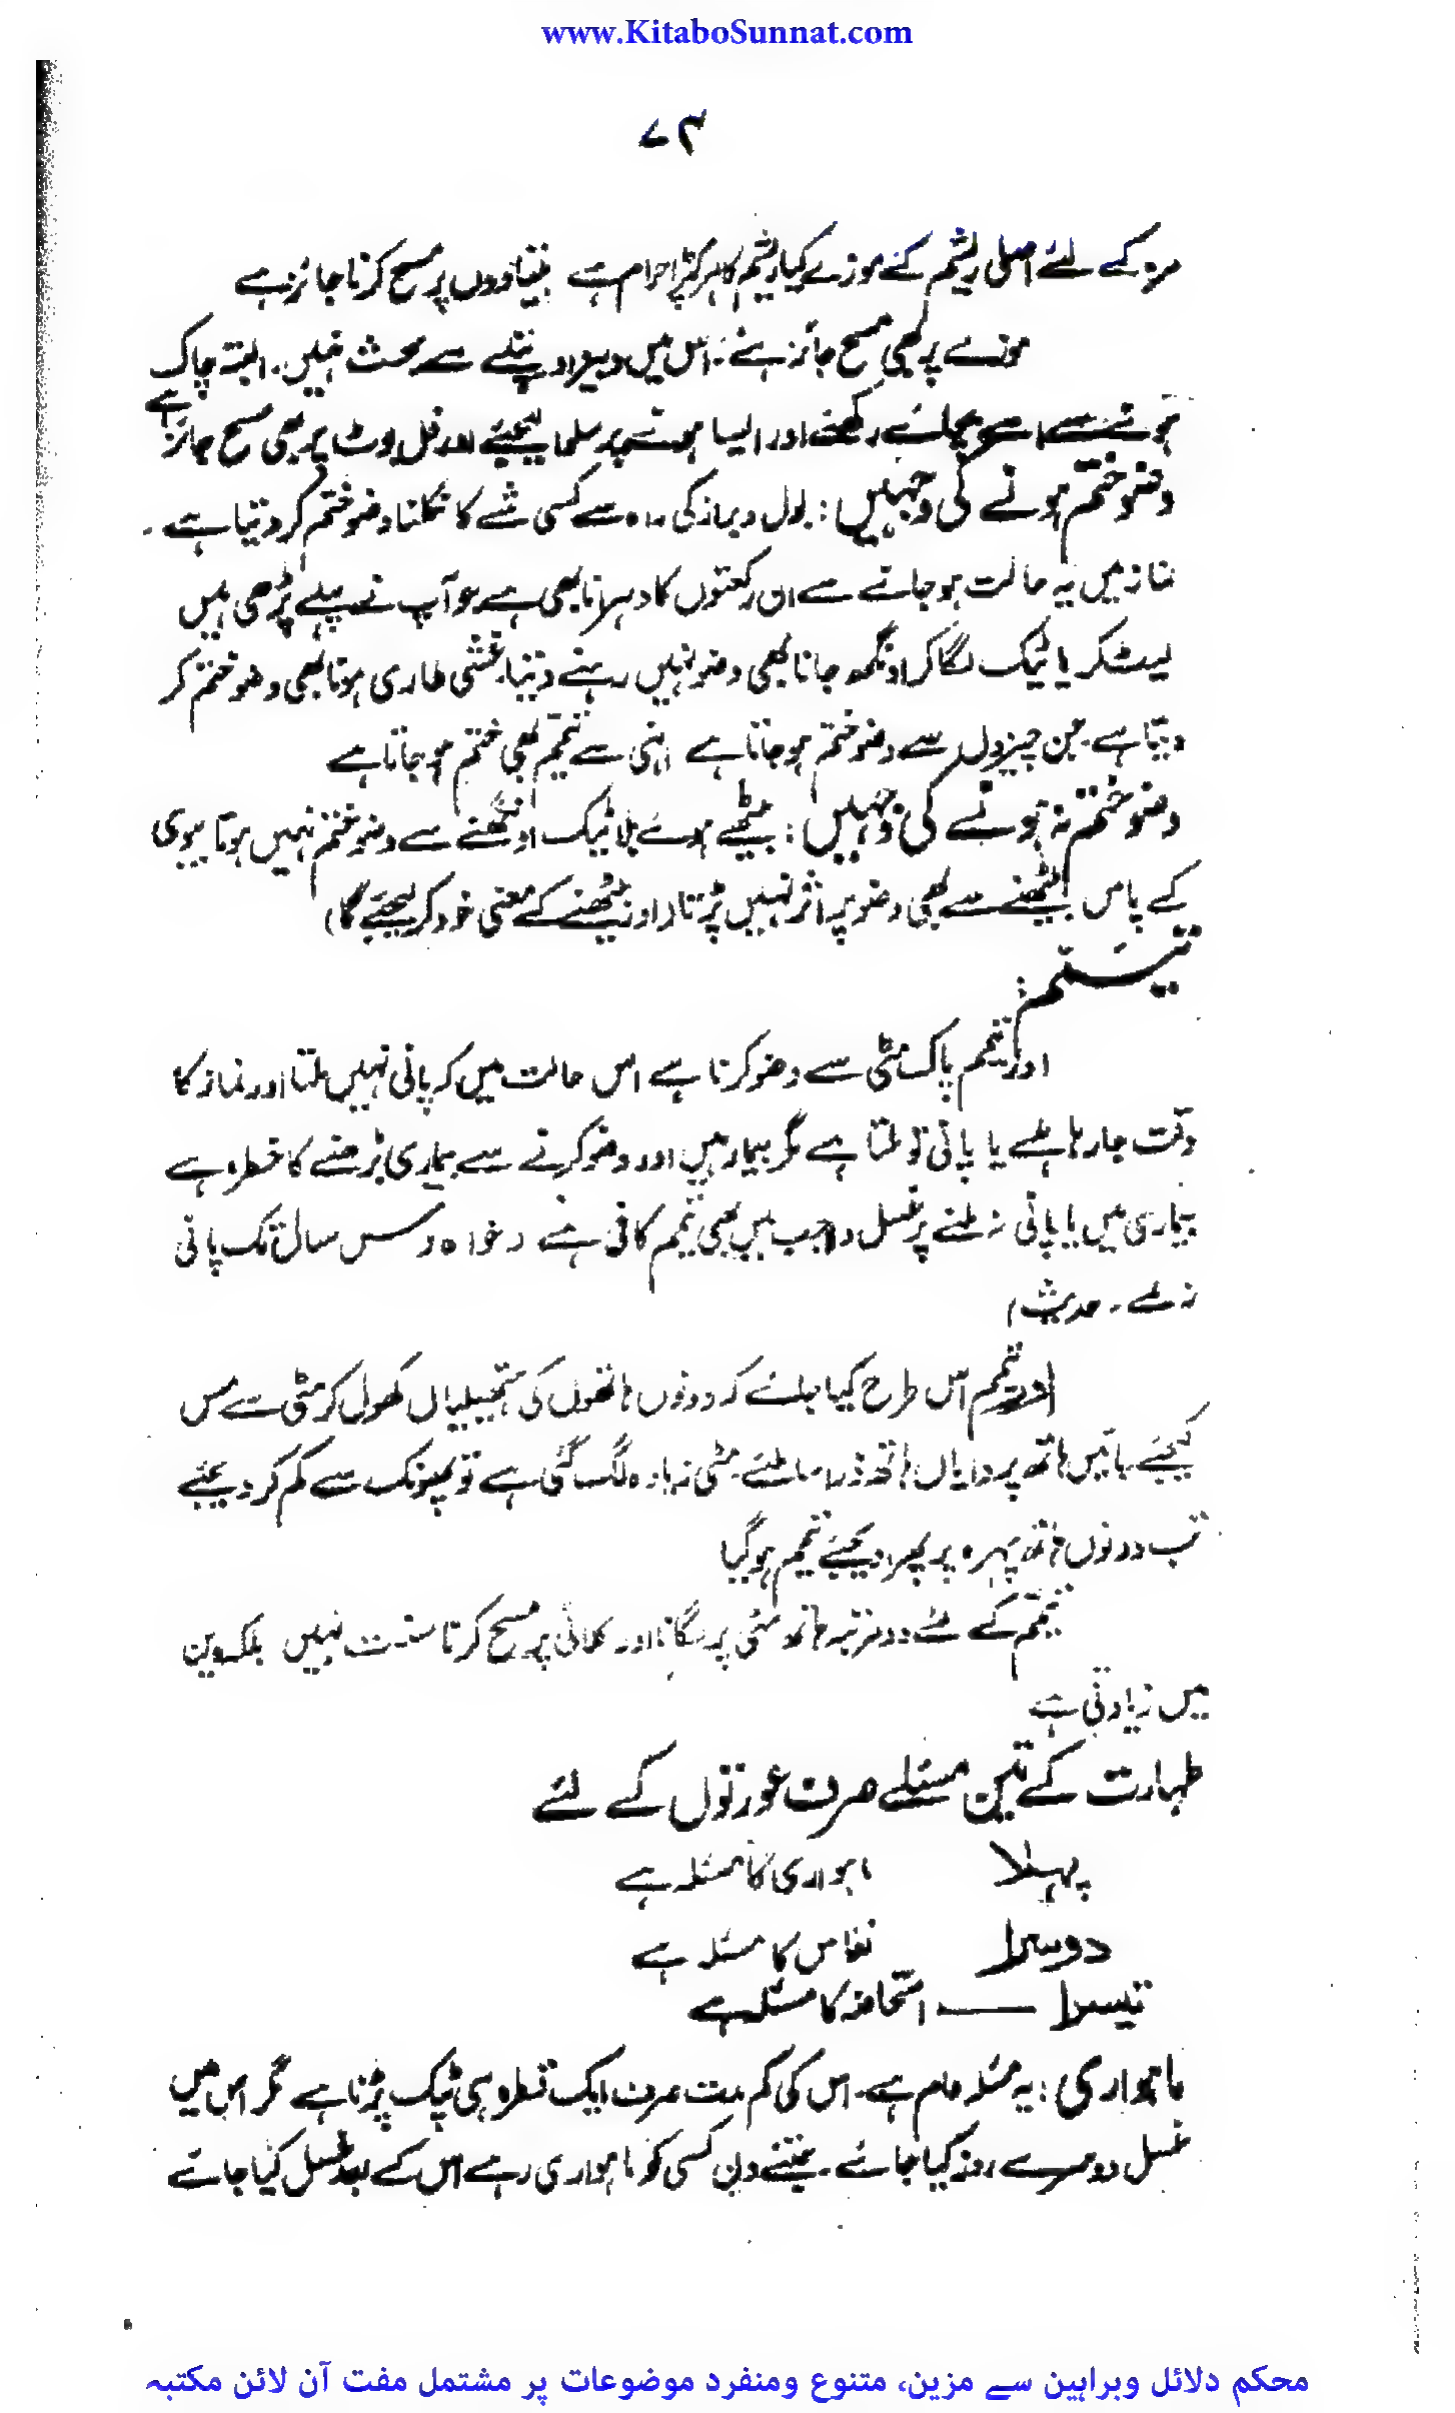 www.KitaboSunnat.com
۷۳
مرد کے لئے اصلی ریشم کے موزے کیا ریشم کا ہر کپڑا حرام ہے بقیتا دوں پر مسح کرنا جائز ہے
موزے پر بھی مسح جائز ہے۔ اس میں دبیز اور پتلے سے بحث نہیں۔ البتہ چاک
ہونے سے اسے بچائے رکھئے اور ایسا ہونے پر سلما لیجئے اور فل بوٹ پر بھی مسح جائز ہے
وضو ختم ہونے کی وجہیں: بول و براز کی راہ سے کسی شے کا نکلنا وضو ختم کر دیتا ہے۔
نماز میں یہ حالت ہو جانے سے ان رکعتوں کا دہرانا بھی ہے جو آپ نے پہلے پڑھی ہیں
لیٹ کر یا ٹیک لگا کر اونگھ جانا بھی وضو نہیں رہنے دیتا۔ غشی طاری ہونا بھی وضو ختم کر
دیتا ہے۔ جن چیزوں سے وضو ختم ہو جاتا ہے انہی سے تیمم بھی ختم ہو جاتا ہے
وضو ختم نہ ہونے کی وجہیں: بیٹھے ہوئے بلا ٹیک اونگھنے سے وضو ختم نہیں ہوتا بیوی
کے پاس بیٹھنے سے بھی وضو پر اثر نہیں پڑتا (اور بیٹھنے کے معنی خود کر لیجئے گا)
تیمم:
اور تیمم پاک مٹی سے وضو کرنا ہے اس حالت میں کہ پانی نہیں ملتا اور نماز کا
وقت جا رہا ہے یا پانی تو ملتا ہے مگر بیمار ہیں اور وضو کرنے سے بیماری بڑھنے کا خطرہ ہے
بیماری میں یا پانی نہ ملنے پر غسل واجب میں بھی تیمم کافی ہے (خواہ دس سال تک پانی
نہ ملے۔ حدیث)
اور تیمم اس طرح کیا جائے کہ دونوں ہاتھوں کی ہتھیلیاں کھول کر مٹی سے مس
کیجئے بائیں ہاتھ پر دایاں ہاتھ ذرا سا ملئے۔ مٹی زیادہ لگ گئی ہے تو پھونک سے کم کر دیجئے
تب دونوں ہاتھ چہرہ پر پھیر دیجئے تیمم ہو گیا
تیمم کے لئے دو مرتبہ ہاتھ مٹی پر لگانا اور کلائی پر مسح کرنا سنت نہیں بلکہ دین
میں زیادتی ہے
طہارت کے تین مسئلے صرف عورتوں کے لئے
پہلا ماہواری کا مسئلہ ہے
دوسرا نفاس کا مسئلہ ہے
تیسرا —— استحاضہ کا مسئلہ ہے
ماہواری: یہ مسئلہ عام ہے۔ اس کی کم مدت صرف ایک قطرہ ہی ٹپک پڑنا ہے مگر اس میں
غسل دوسرے روز کیا جائے۔ جتنے دن کسی کو ماہواری رہے اس کے بعد غسل کیا جائے
محکم دلائل وبراہین سے مزین، متنوع ومنفرد موضوعات پر مشتمل مفت آن لائن مکتبہ